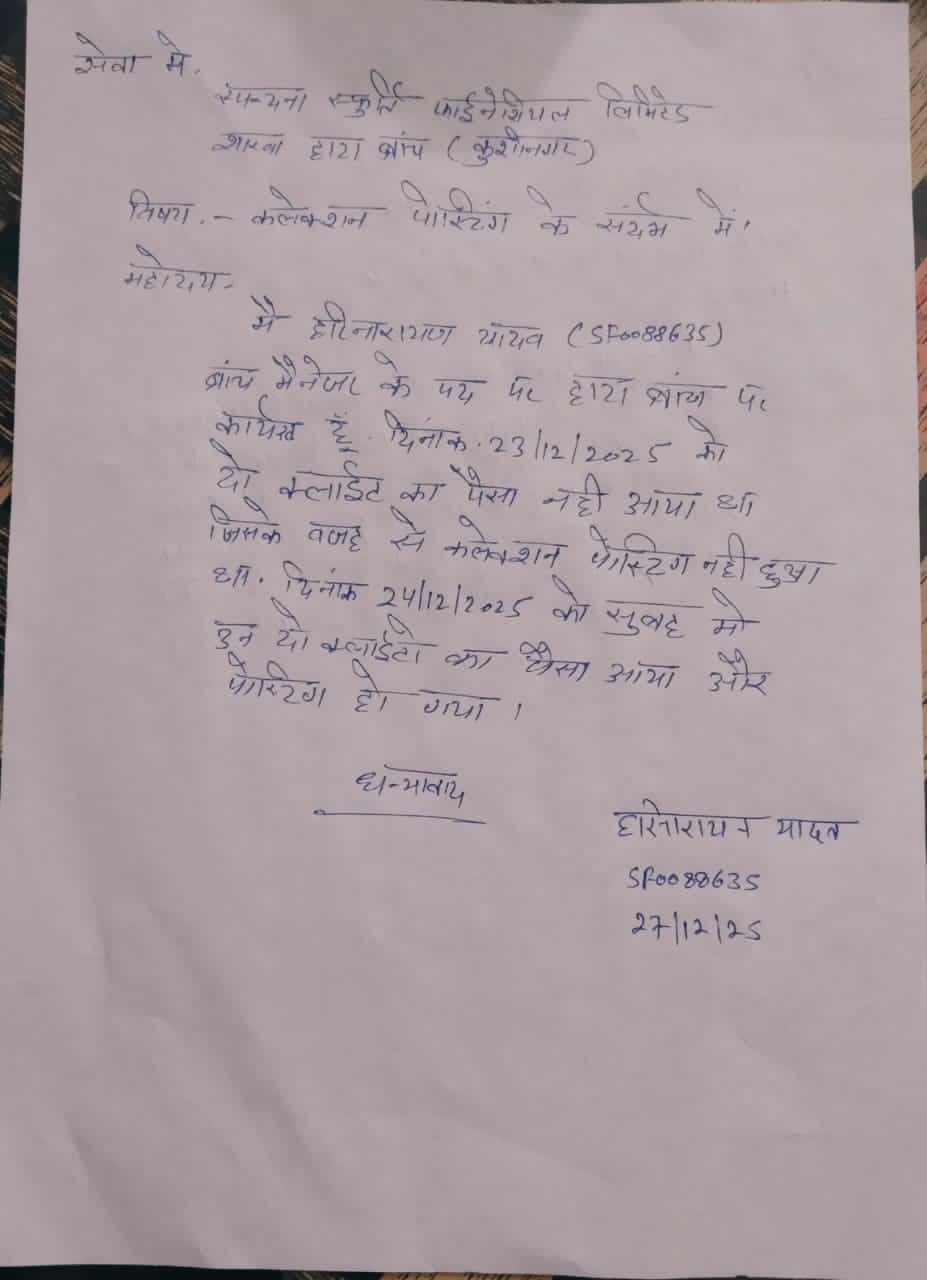 सेवा मे.
स्पन्दना स्फुर्ति फाईनेशियल लिमिटेड
शाखा हाटा ब्रांच (कुशीनगर)
विषय. - कलेक्शन पोस्टिंग के संदर्भ में।
महोदय-
मै हरिनारायण यादव (SF0088635)
ब्रांच मैनेजर के पद पर हाटा ब्रांच पर
कार्यरत हूँ. दिनांक. 23/12/2025 को
दो क्लाईट का पैसा नही आया था
जिसके वजह से कलेक्शन पोस्टिंग नही हुआ
था. दिनांक 24/12/2025 को सुबह मो
उन दो क्लाईटो का पैसा आया और
पोस्टिंग हो गया।
धन्यावाद
हरिनारायन यादव
SF0088635
27/12/25